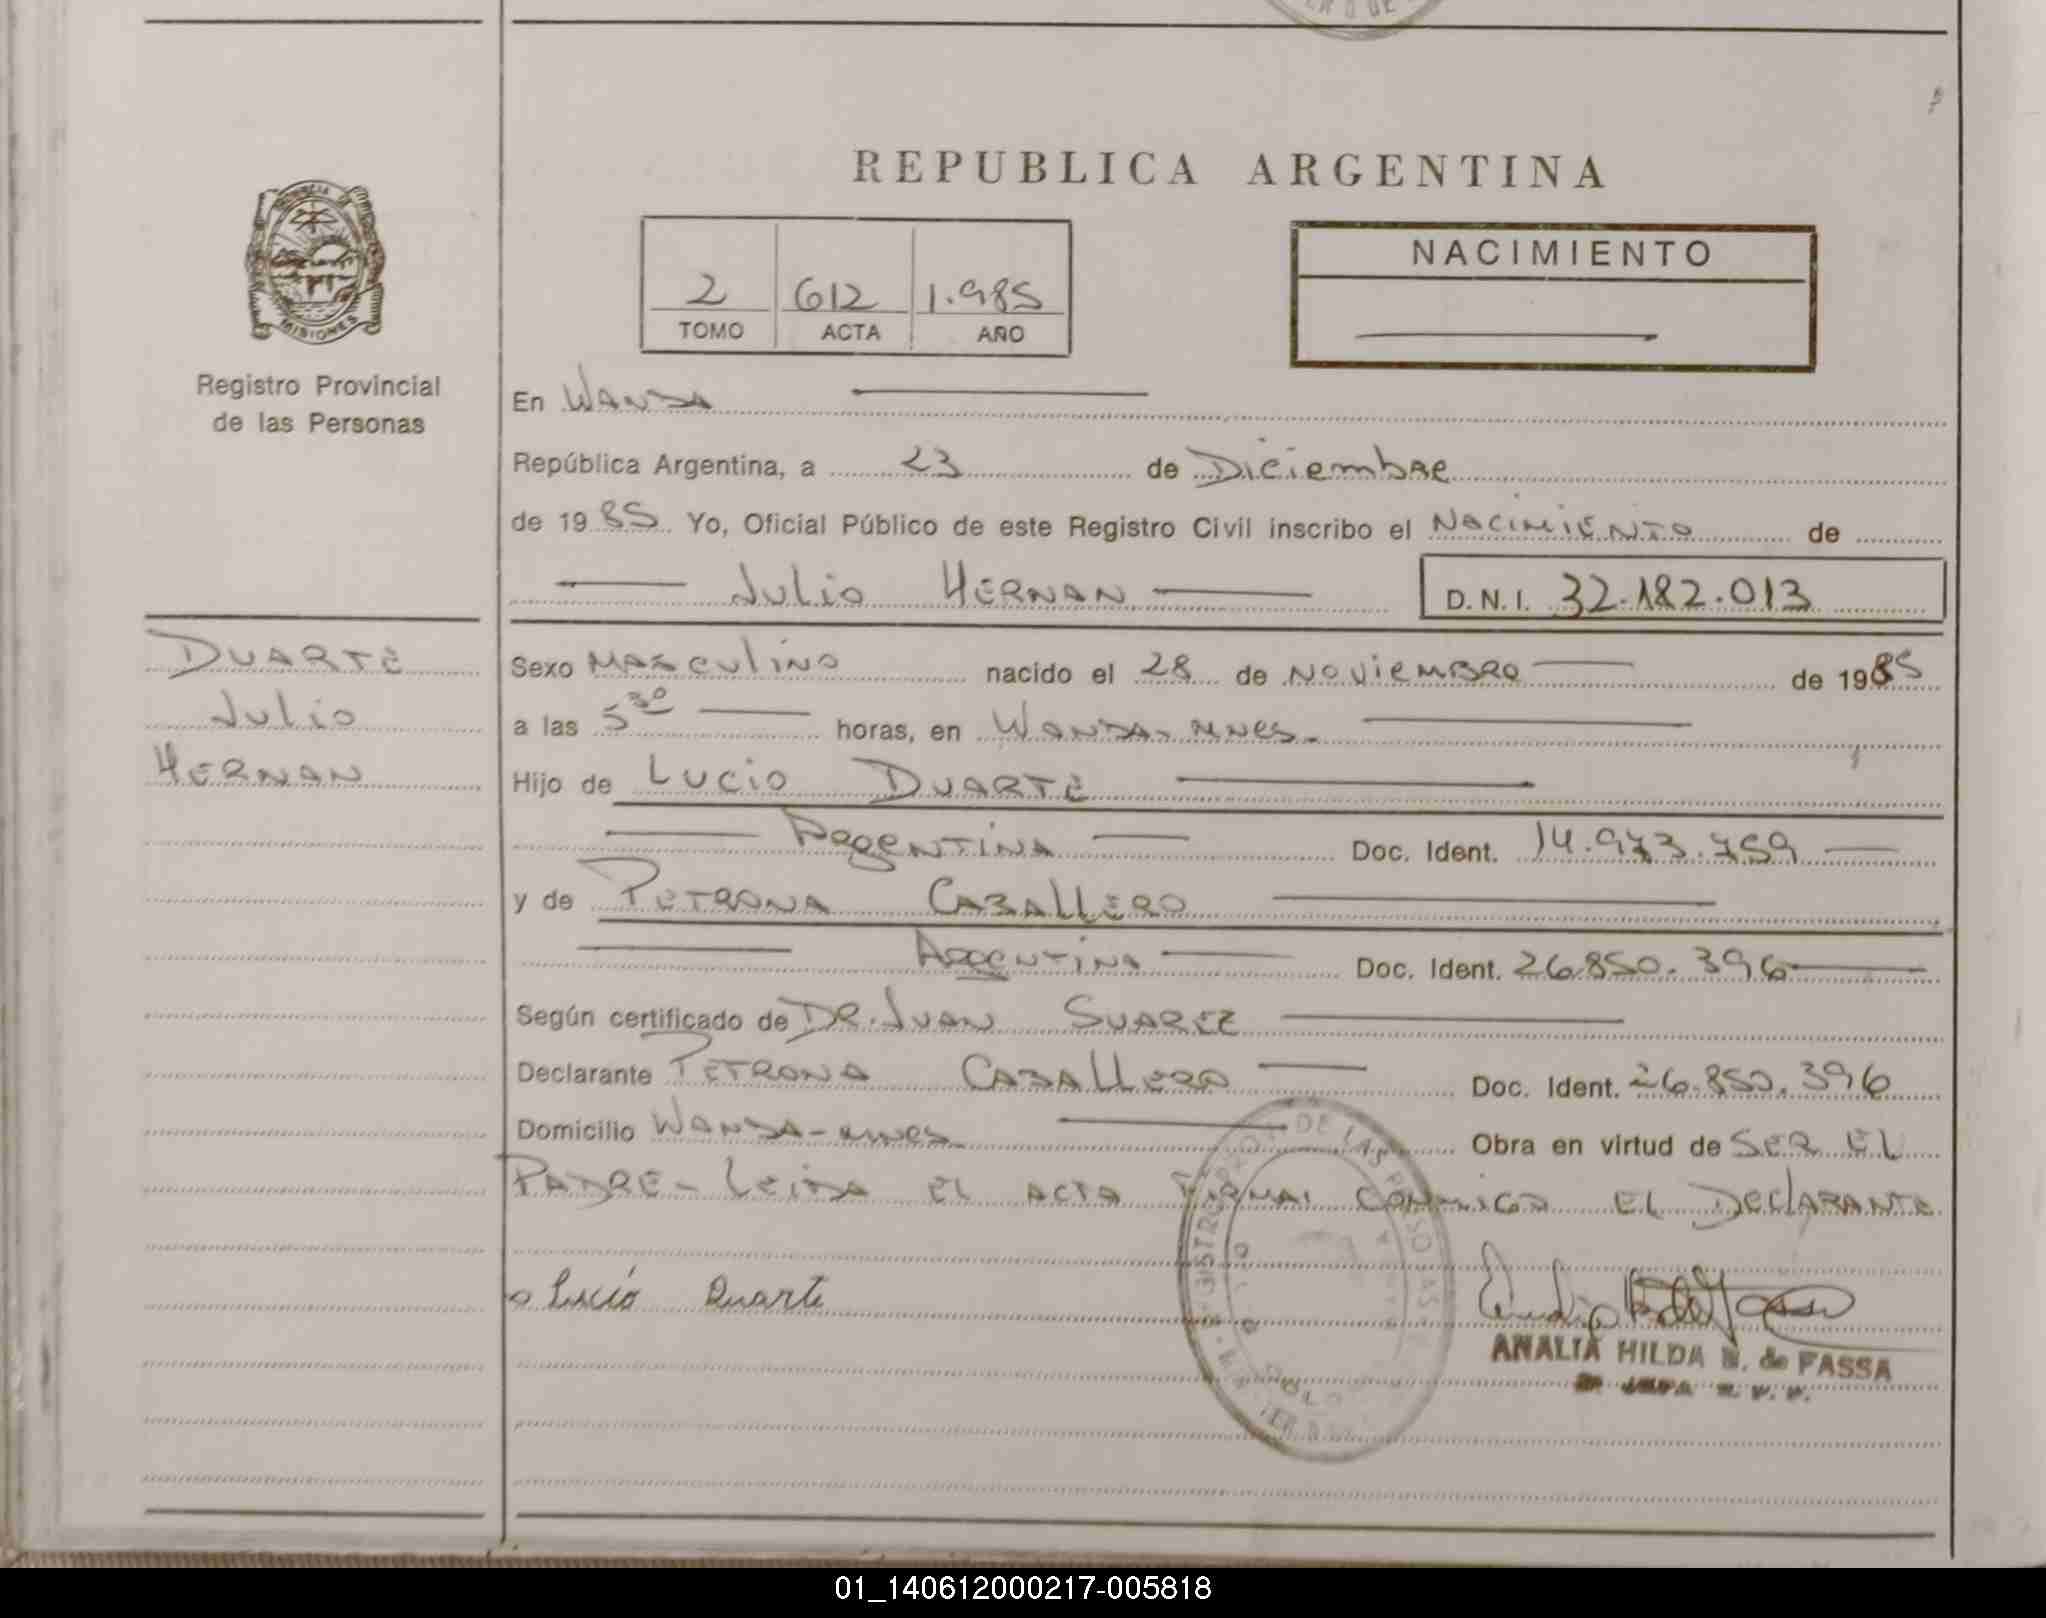 REPUBLICA ARGENTINA
PROVINCIA
MISIONES
Registro Provincial
de las Personas
2 612 1.985
TOMO ACTA AÑO
NACIMIENTO
En Wanda
República Argentina, a 23 de Diciembre
de 1985 Yo, Oficial Público de este Registro Civil inscribo el Nacimiento de
Julio Hernan D.N.I. 32.182.013
DUARTE
Julio
Hernan
Sexo Masculino nacido el 28 de Noviembro de 1985
a las 5 30 horas, en Wanda-Mnes.
Hijo de Lucio DUARTE
Argentina Doc. Ident. 14.973.759
y de Petrona Caballero
Argentina Doc. Ident. 26.850.396
Según certificado de DR. Juan Suarez
Declarante Petrona Caballero Doc. Ident. 26.850.396
Domicilio Wanda-Mnes Obra en virtud de ser el
Padre - Leida el acta firma conmigo el Declarante
Lucio Duarte
ANALIA HILDA N. de FASSA
01_140612000217-005818